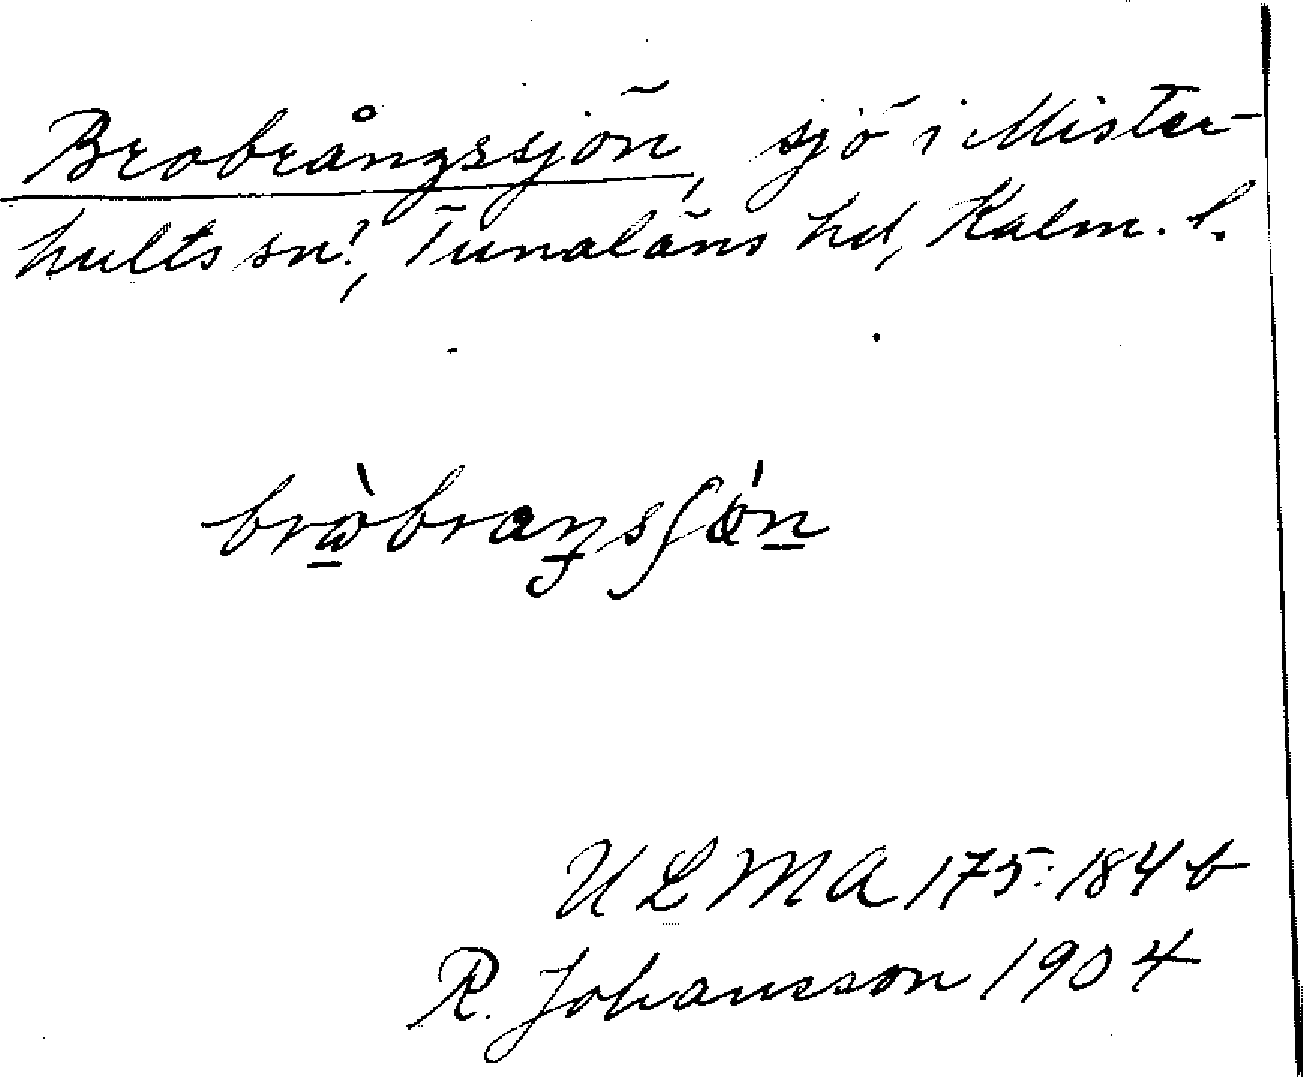 Brobrångssjön, sjö i Mister-
hults sn!, Tunaläns hd, Kalm. l.
brὼ̲braŋsʃǿn̲
ULMA 175:184 b
R. Johansson 1904